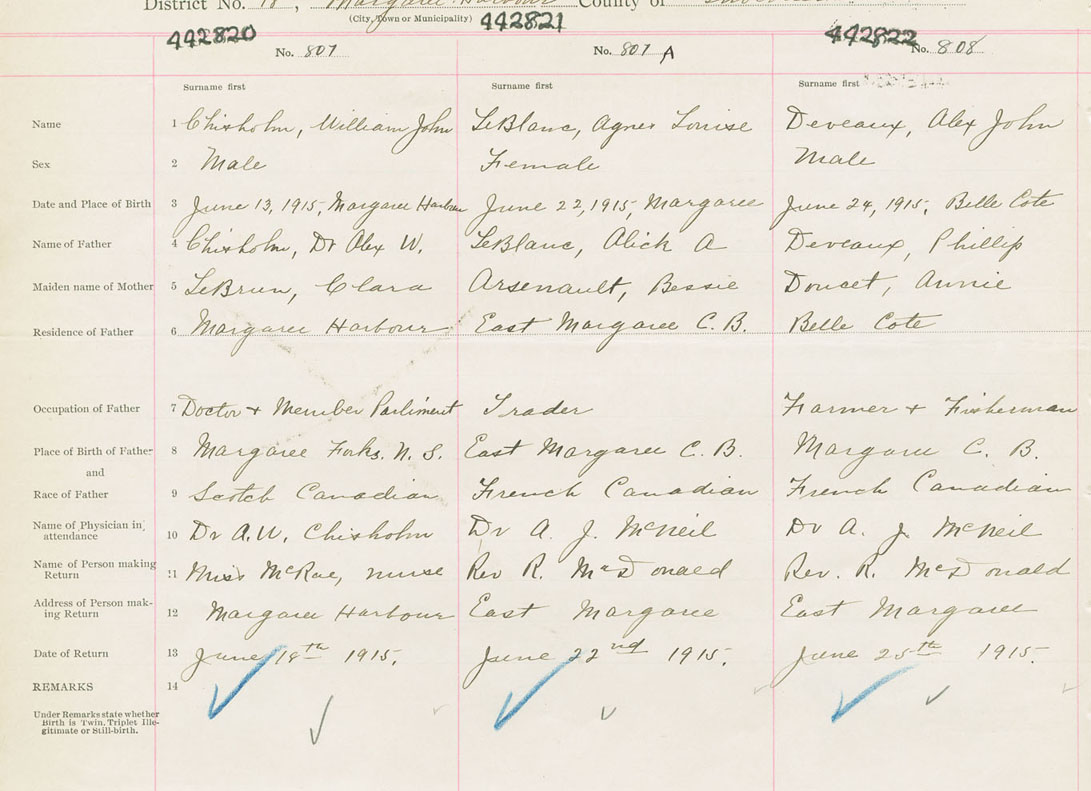 District No. 18, Margaree Harbour County of
(City, Town or Municipality)
442820 442821 442822
No. 807 No. 807 A No. 808
Surname first Surname first Surname first
Name 1 Chisholm, William John LeBlanc, Agnes Louise Deveaux, Alex John
Sex 2 Male Female Male
Date and Place of Birth 3 June 13, 1915, Margaree Harbour June 22, 1915, Margaree June 24, 1915, Belle Cote
Name of Father 4 Chisholm, Dr Alex W. LeBlanc, Alick A Deveaux, Phillip
Maiden name of Mother 5 LeBrun, Clara Arsenault, Bessie Doucet, Annie
Residence of Father 6 Margaree Harbour East Margaree C. B. Belle Cote
Occupation of Father 7 Doctor + Member Parliment Trader Farmer + Fisherman
Place of Birth of Father 8 Margaree Forks. N. S. East Margaree C. B. Margaree C. B.
and
Race of Father 9 Scotch Canadian French Canadian French Canadian
Name of Physician in attendance 10 Dr A. W. Chisholm Dr A. J. McNeil Dr A. J. McNeil
Name of Person making Return 11 Miss McRae, nurse Rev R. McDonald Rev. R. McDonald
Address of Person mak-
ing Return 12 Margaree Harbour East Margaree East Margaree
Date of Return 13 June th 1915. June 22nd 1915. June 25th 1915.
REMARKS 14
Under Remarks state whether
Birth is Twin, Triplet Ille-
gitimate or Still-birth.